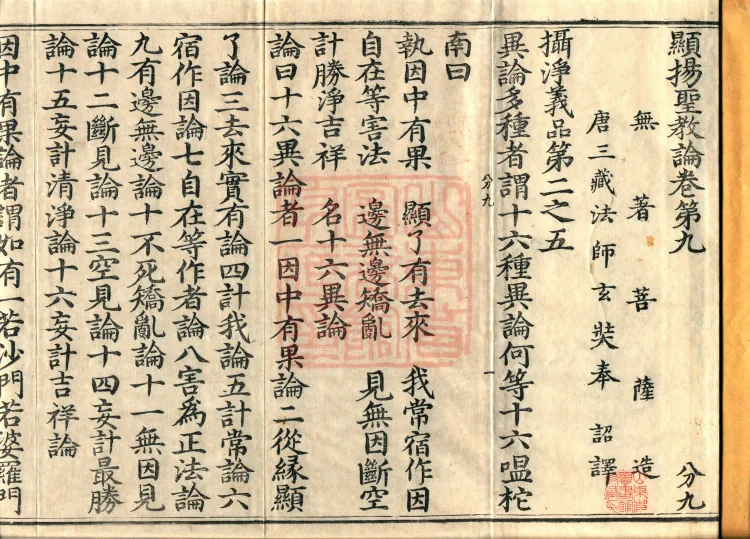 顯揚聖教論卷第九 分九
無著菩薩造
唐三藏法師玄奘奉 詔譯
攝淨義品第二之五
異論多種者謂十六種異論何等十六嗢柁
分九 一
南曰
執因中有果 顯了有去來 我常宿作因
自在等害法 邊無邊矯亂 見無因斷空
計勝淨吉祥 名十六異論
論曰十六異論者一因中有果論二從緣顯
了論三去來實有論四計我論五計常論六
宿作因論七自在等作者論八害為正法論
九有邊無邊論十不死矯亂論十一無因見
論十二斷見論十三空見論十四妄計最勝
論十五妄計清淨論十六妄計吉祥論
因中有果論者謂如有一若沙門若婆羅門